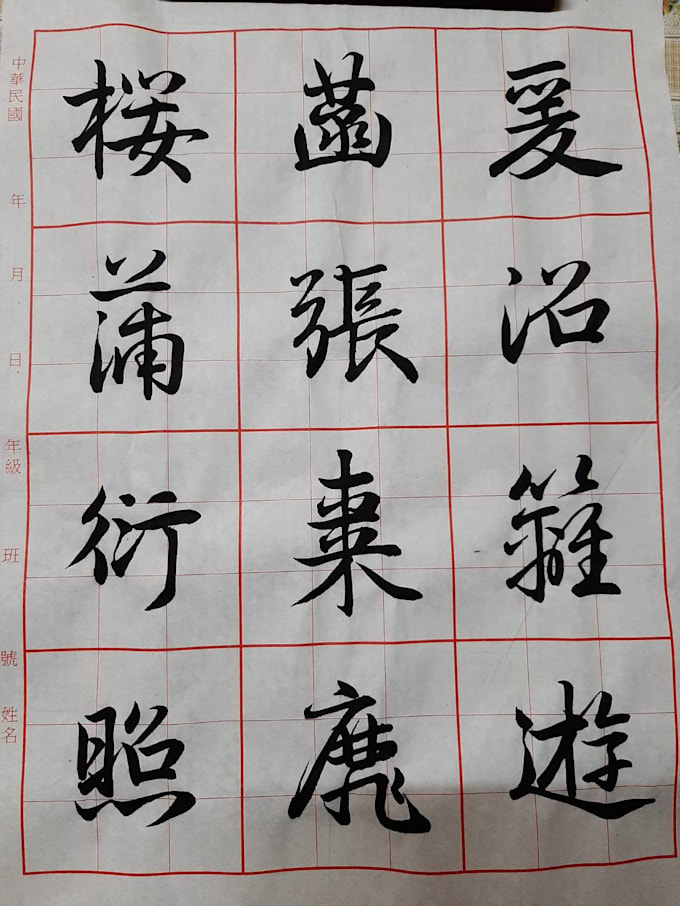 爰沿籬遊
張棗
桜蒲衍照
中華民國 年 月 日 年級 班 號 姓名